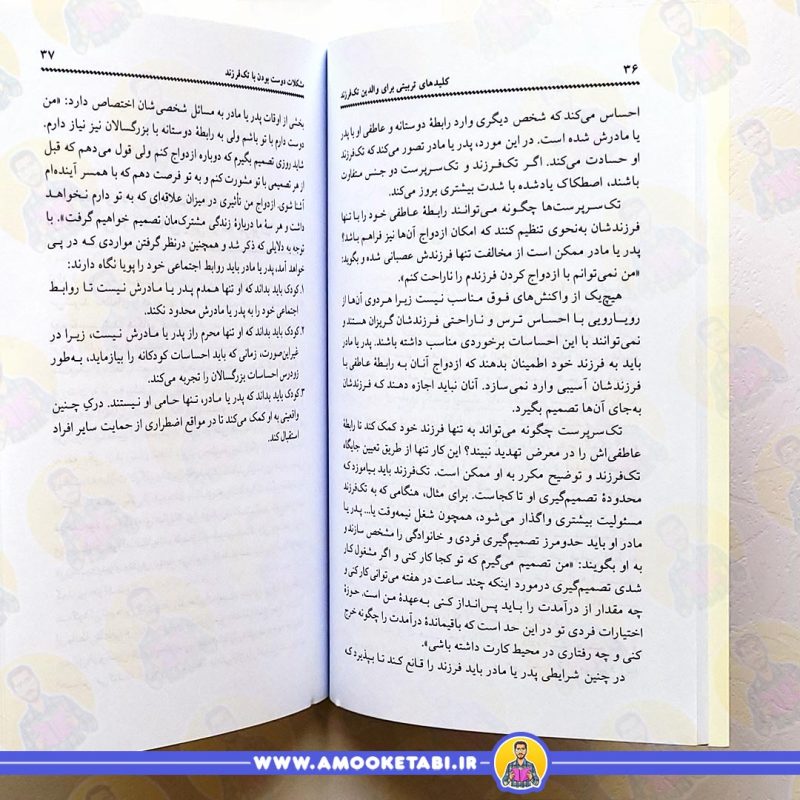 ۳۶
کلیدهای تربیتی برای والدین تک‌فرزند
احساس می‌کند که شخص دیگری وارد رابطهٔ دوستانه و عاطفی او با پدر
یا مادرش شده است. در این مورد، پدر یا مادر تصور می‌کند که تک‌فرزند
او حسادت می‌کند. اگر تک‌فرزند و تک‌سرپرست دو جنس متفاوت
باشند، اصطکاک یادشده با شدت بیشتری بروز می‌کند.
تک‌سرپرست‌ها چگونه می‌توانند رابطهٔ عاطفی خود را با تنها
فرزندشان به‌نحوی تنظیم کنند که امکان ازدواج آن‌ها نیز فراهم باشد؟
پدر یا مادر ممکن است از مخالفت تنها فرزندش عصبانی شده و بگوید:
«من نمی‌توانم با ازدواج کردن فرزندم را ناراحت کنم».
هیچ‌یک از واکنش‌های فوق مناسب نیست زیرا هردوی آن‌ها از
رویارویی با احساس ترس و ناراحتی فرزندشان گریزان هستند و
نمی‌توانند با این احساسات برخوردی مناسب داشته باشند. پدر یا مادر
باید به فرزند خود اطمینان بدهند که ازدواج آنان به رابطهٔ عاطفی با
فرزندشان آسیبی وارد نمی‌سازد. آنان نباید اجازه دهند که فرزندشان
به‌جای آن‌ها تصمیم بگیرد.
تک‌سرپرست چگونه می‌تواند به تنها فرزند خود کمک کند تا رابطهٔ
عاطفی‌اش را در معرض تهدید نبیند؟ این کار تنها از طریق تعیین جایگاه
تک‌فرزند و توضیح مکرر به او ممکن است. تک‌فرزند باید بیاموزد که
محدودهٔ تصمیم‌گیری او تا کجاست. برای مثال، هنگامی که به تک‌فرزند
مسئولیت بیشتری واگذار می‌شود، همچون شغل نیمه‌وقت یا... پدر یا
مادر او باید حدومرز تصمیم‌گیری فردی و خانوادگی را مشخص سازند و
به او بگویند: «من تصمیم می‌گیرم که تو کجا کار کنی و اگر مشغول کار
شدی تصمیم‌گیری درمورد اینکه چند ساعت در هفته می‌توانی کار کنی و
چه مقدار از درآمدت را باید پس‌انداز کنی به‌عهدهٔ من است. حوزهٔ
اختیارات فردی تو در این حد است که باقیماندهٔ درآمدت را چگونه خرج
کنی و چه رفتاری در محیط کارت داشته باشی».
در چنین شرایطی پدر یا مادر باید فرزند را قانع کند تا بپذیرد که
مشکلات دوست بودن با تک‌فرزند
۳۷
بخشی از اوقات پدر یا مادر به مسائل شخصی‌شان اختصاص دارد: «من
دوست دارم با تو باشم ولی به رابطهٔ دوستانه با بزرگسالان نیز نیاز دارم.
شاید روزی تصمیم بگیرم که دوباره ازدواج کنم ولی قول می‌دهم که قبل
از هر تصمیمی با تو مشورت کنم و به تو فرصت دهم که با همسر آینده‌ام
آشنا شوی. ازدواج من تأثیری در میزان علاقه‌ای که به تو دارم نخواهد
داشت و هر سهٔ ما دربارهٔ زندگی مشترک‌مان تصمیم خواهیم گرفت». با
توجه به دلایلی که ذکر شد و همچنین درنظر گرفتن مواردی که در پی
خواهد آمد، پدر یا مادر باید روابط اجتماعی خود را پویا نگاه دارند:
۱.کودک باید بداند که او تنها همدم پدر یا مادرش نیست تا روابط
اجتماعی خود را به پدر یا مادرش محدود نکند.
۲.کودک باید بداند که او تنها محرم راز پدر یا مادرش نیست، زیرا در
غیراین‌صورت، زمانی که باید احساسات کودکانه را بیازماید، به‌طور
زودرس احساسات بزرگسالان را تجربه می‌کند.
۳.کودک باید بداند که پدر یا مادر، تنها حامی او نیستند. درک چنین
واقعیتی به او کمک می‌کند تا در مواقع اضطراری از حمایت سایر افراد
استقبال کند.
WWW.AMOOKETABI.IR